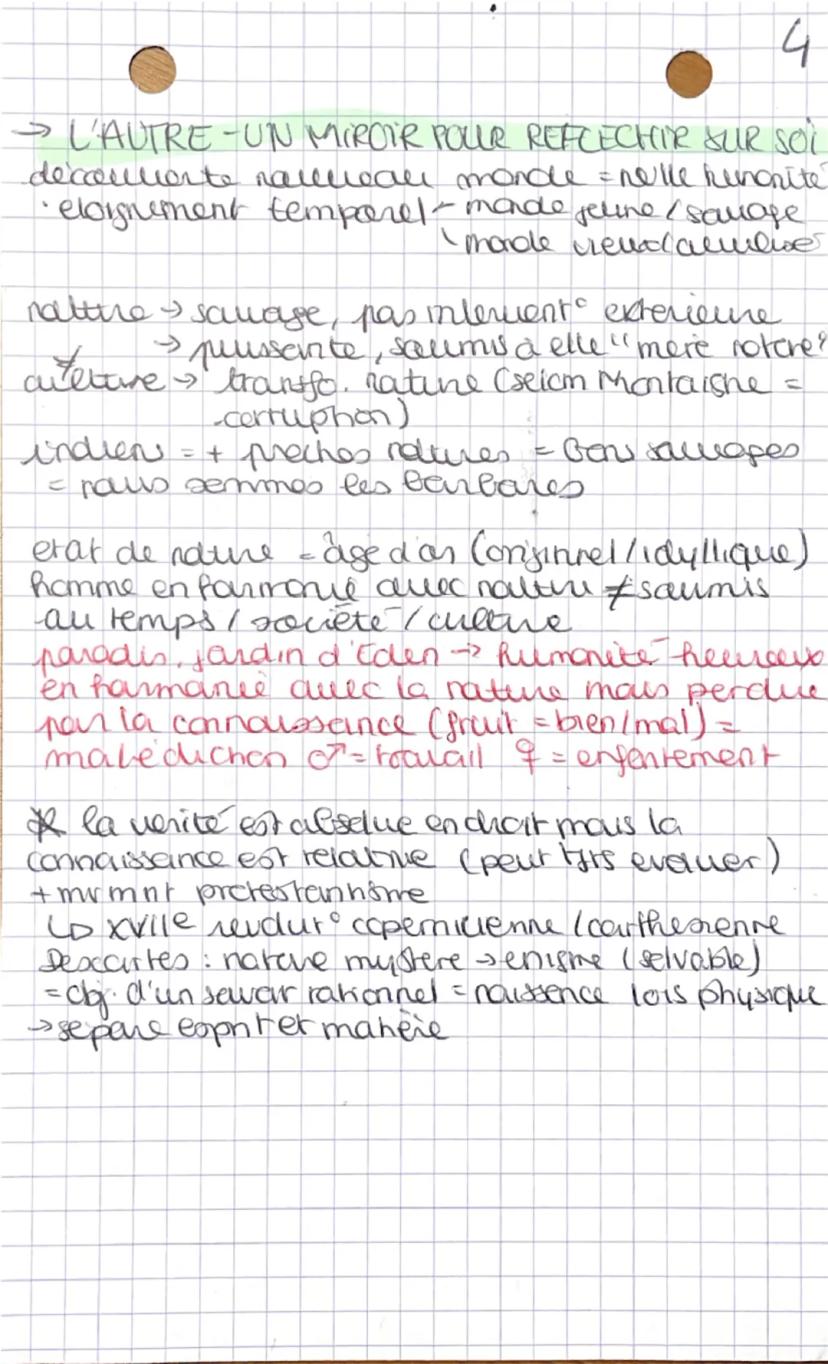 4
→ L'AUTRE - UN MIROIR POUR REFLECHIR SUR SOI
découverte nouveau monde = nelle humanité
· eloignement temporel - monde jeune / sauvage
\ monde vieux /
nature → sauvage, pas intervent° exterieure
→ puissante, soumis à elle "mère"
≠
culture → transfo. nature (selon Montaigne =
corruption)
indiens = + proches natures = bons sauvages
= nous sommes les barbares
etat de nature = âge d'or (originnel / idyllique)
homme en harmonie avec nature ≠ soumis
au temps / société / culture
paradis, jardin d'Eden → humanité heureuse
en harmonie avec la nature mais perdue
par la connaissance (fruit = bien/mal) =
malediction ♂ = travail ♀ = enfantement
* la verité est absolue en droit mais la
connaissance est relative (peut tjrs evoluer)
+ mvmnt protestantisme
↳ XVIIe revolut° copernicienne / carthesienne
Descartes : nature mystère → enigme (solvable)
= obj. d'un savoir rationnel = naissance lois physique
→ separe esprit et matière